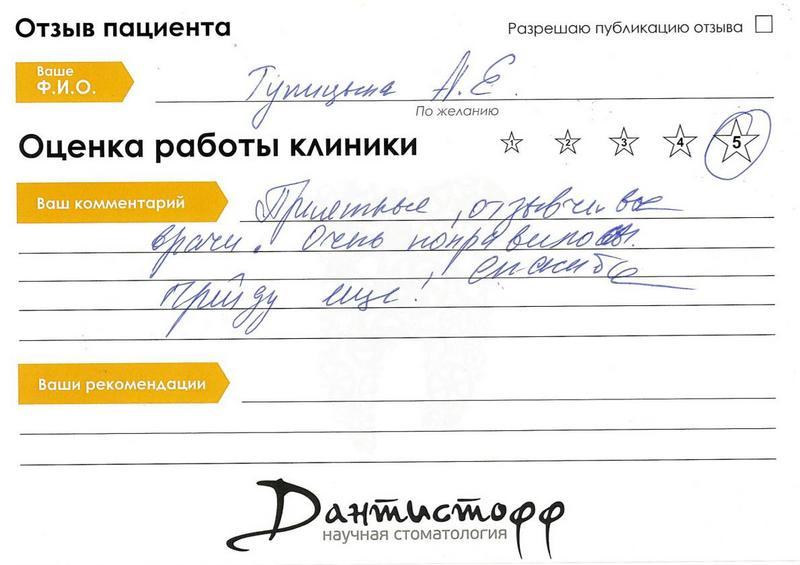 Отзыв пациента
Разрешаю публикацию отзыва
Ваше
Ф.И.О.
Тупицына А.Е.
По желанию
Оценка работы клиники
1 2 3 4 5
Ваш комментарий
Приятные, отзывчивые
врачи. Очень понравилось.
Прийду еще! спасибо
Ваши рекомендации
Дантистофф
научная стоматология